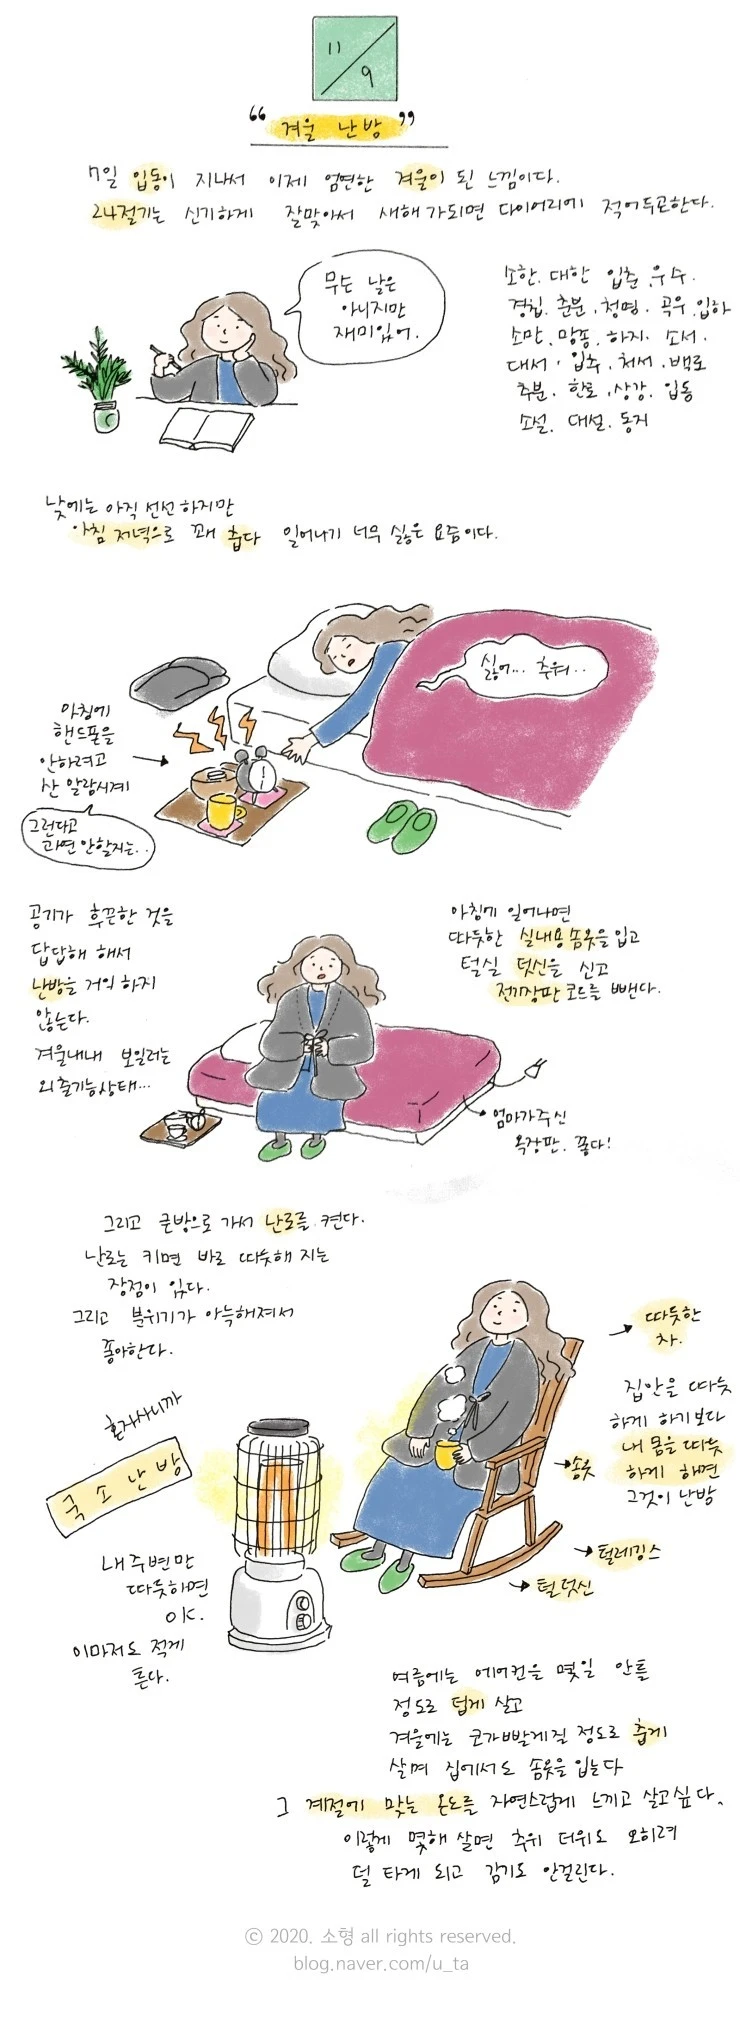 11
9
“겨울 난방”
7일 입동이 지나서 이제 엄연한 겨울이 된 느낌이다.
24절기는 신기하게 잘맞아서 새해 가되면 다이어리에 적어두곤한다.
무슨 날은
아니지만
재미있어.
소한. 대한 입춘. 우수.
경칩. 춘분. 청명. 곡우. 입하
소만. 망종. 하지. 소서.
대서. 입추. 처서. 백로
추분. 한로. 상강. 입동
소설. 대설. 동지
낮에는 아직 선선하지만
아침 저녁으로 꽤 춥다 일어나기 너무 싫은 요즘이다.
싫어... 추워..
아침에
핸드폰을
안하려고
산 알람시계
그런다고
과연 안할지는..
공기가 후끈한 것을
답답해 해서
난방을 거의 하지
않는다.
겨울내내 보일러는
외출기능상태...
아침에 일어나면
따듯한 실내용솜옷을 입고
털실 덧신을 신고
전기장판 코드를 뺀다.
엄마가주신
옥장판. 좋다!
그리고 큰방으로 가서 난로를 켠다.
난로는 키면 바로 따듯해 지는
장점이 있다.
그리고 분위기가 아늑해져서
좋아한다.
혼자사니까
국소난방
내주변만
따듯하면
OK.
이마저도 적게
튼다.
따듯한
차.
집안을 따듯
하게 하기보다
내 몸을 따듯
하게 해면
그것이 난방
솜옷
털레깅스
털덧신
여름에는 에어컨을 몇일 안틀
정도로 덥게 살고
겨울에는 코가빨갛게질 정도로 춥게
살며 집에서도 솜옷을 입는다
그 계절에 맞는 온도를 자연스럽게 느끼고 살고싶다.
이렇게 몇해 살면 추위 더위도 오히려
덜 타게 되고 감기도 안걸린다.
ⓒ 2020. 소형 all rights reserved.
blog.naver.com/u_ta